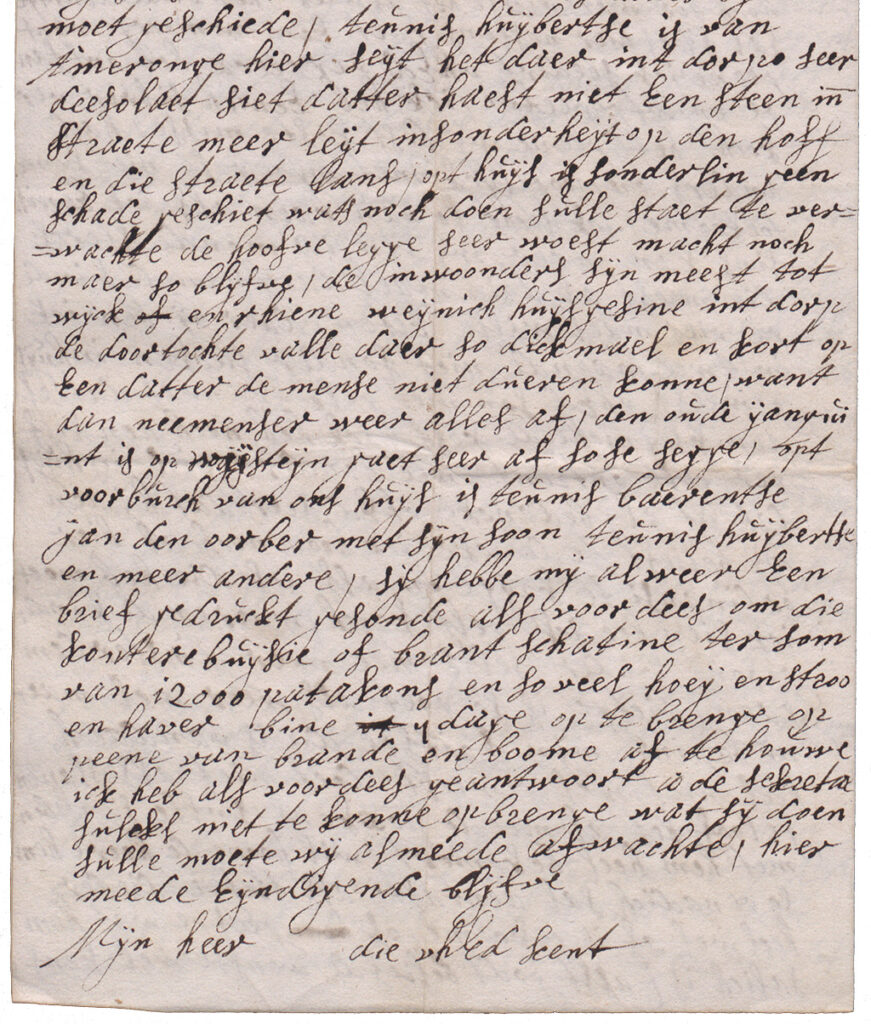 moet geschiede, teunis huijbertse is van
Ameronge hier seijt het daer int dorp so seer
deesolaet siet datter haest niet Een steen inn
straete meer leijt insonderheijt op den hoff
en die straete lans, opt huijs is sonderlin geen
schade geschiet wats noch doen sulle staet te ver=
=wachte de hoofve legge seer woest macht noch
maer so blijfve, de inwoonders sijn meest tot
wijck en rhiene weijnich huijsgesine int dorp
de doortochte valle daer so dickmael en kort op
Een datter de mense niet dueren konne, want
dan neemenser weer alles af, den oude ijanqui
=nt is op steijn gaet seer af so se segge, opt
voorburch van ons huijs is teunis baerentse
jan den oorber met sijn soon teunis huijbertse
en meer andere, sij hebbe mij al weer Een
brief gedruckt gesonde als voor dees om die
konterebuijsie of brant schatine ter som
van 12000 patakons en so veel hoeij en stroo
en haver bine 9 dage op te brenge op
peene van brande en boome af te houwe
ick heb als voor dees geantwoort a de sekreta
sulcks niet te konne opbrenge wat sij doen
sulle moete wij almeede afwachte, hier
meede Eijndigende blijfve
Mijn heer die uhEd kent